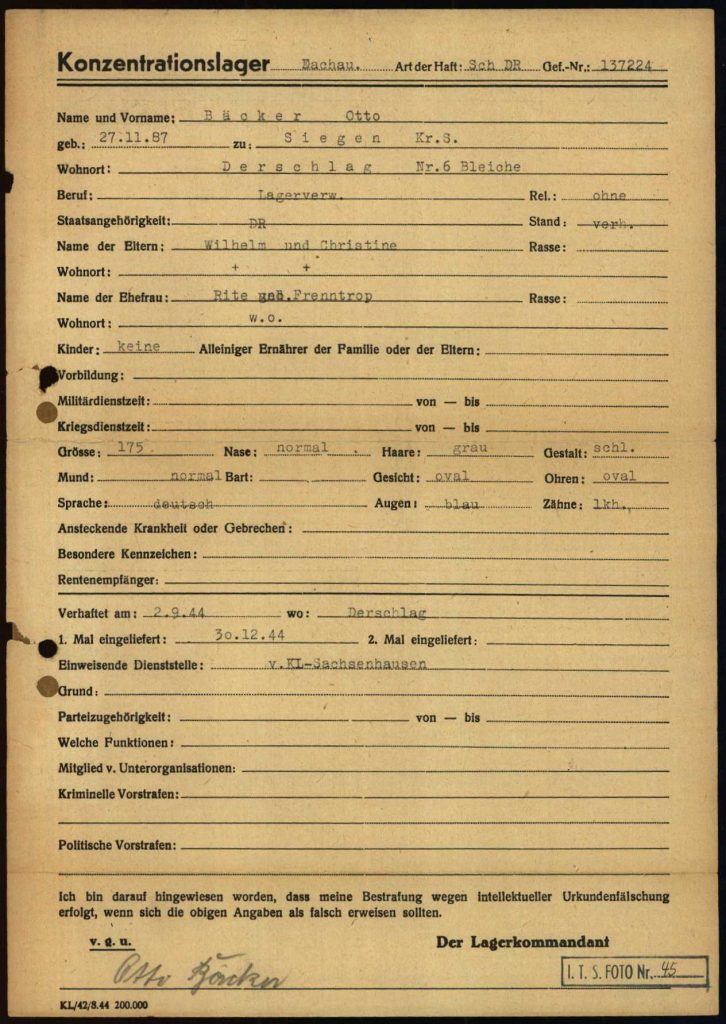 Konzentrationslager Dachau. Art der Haft: Sch DR Gef.-Nr.: 137224
Name und Vorname: Bäcker Otto
geb.: 27.11.87 zu: Siegen Kr.S.
Wohnort: Derschlag Nr.6 Bleiche
Beruf: Lagerverw. Rel.: ohne
Staatsangehörigkeit: DR Stand: verh.
Name der Eltern: Wilhelm und Christine Rasse:
Wohnort: + +
Name der Ehefrau: Rite geb. Frenntrop Rasse:
Wohnort: w.o.
Kinder: keine Alleiniger Ernährer der Familie oder der Eltern:
Vorbildung:
Militärdienstzeit: von — bis
Kriegsdienstzeit: von — bis
Grösse: 175 Nase: normal Haare: grau Gestalt: schl.
Mund: normal Bart: Gesicht: oval Ohren: oval
Sprache: deutsch Augen: blau Zähne: lkh.
Ansteckende Krankheit oder Gebrechen:
Besondere Kennzeichen:
Rentenempfänger:
Verhaftet am: 2.9.44 wo: Derschlag
1. Mal eingeliefert: 30.12.44 2. Mal eingeliefert:
Einweisende Dienststelle: v.KL-Sachsenhausen
Grund:
Parteizugehörigkeit: von — bis
Welche Funktionen:
Mitglied v. Unterorganisationen:
Kriminelle Vorstrafen:
Politische Vorstrafen:
Ich bin darauf hingewiesen worden, dass meine Bestrafung wegen intellektueller Urkundenfälschung
erfolgt, wenn sich die obigen Angaben als falsch erweisen sollten.
v. g. u. Der Lagerkommandant
Otto Bäcker
I. T. S. FOTO Nr. 45
KL/42/8.44 200.000